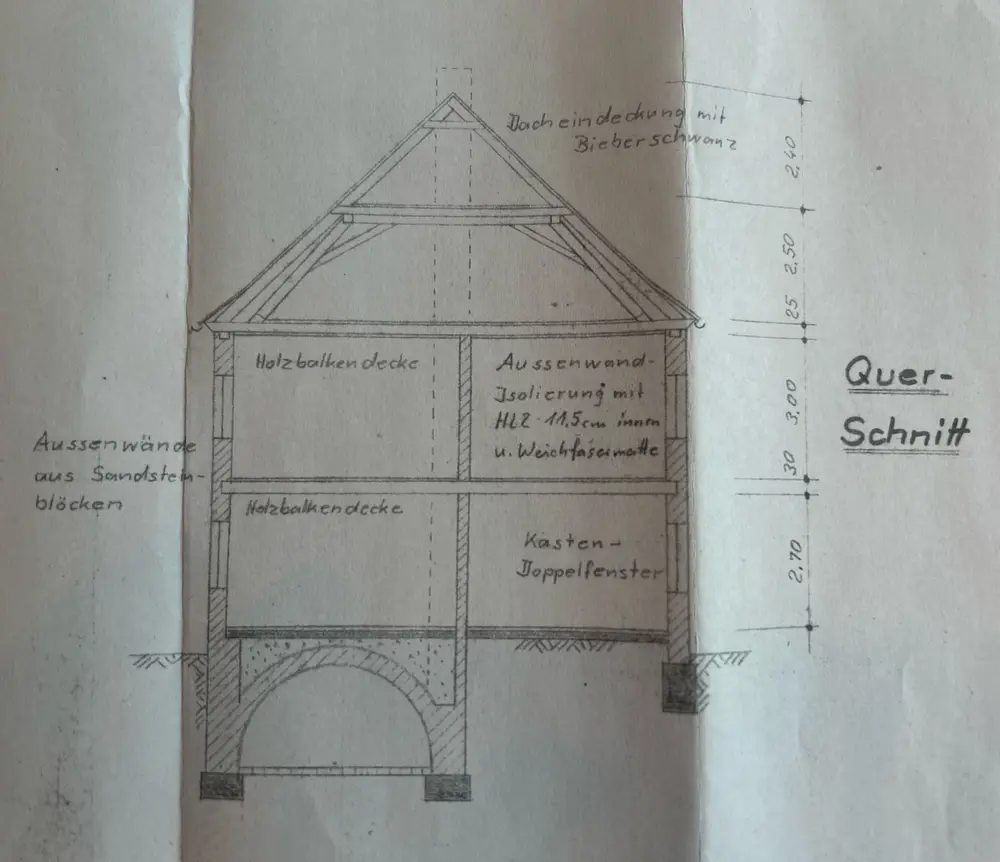 Dacheindeckung mit
Bieberschwanz
2,40
2,50
25
Holzbalkendecke
Aussenwand-
Isolierung mit
HLZ-11,5cm innen
u. Weichfasermatte
3,00
Quer-
Schnitt
Aussenwände
aus Sandstein-
blöcken
30
Holzbalkendecke
Kasten-
Doppelfenster
2,70